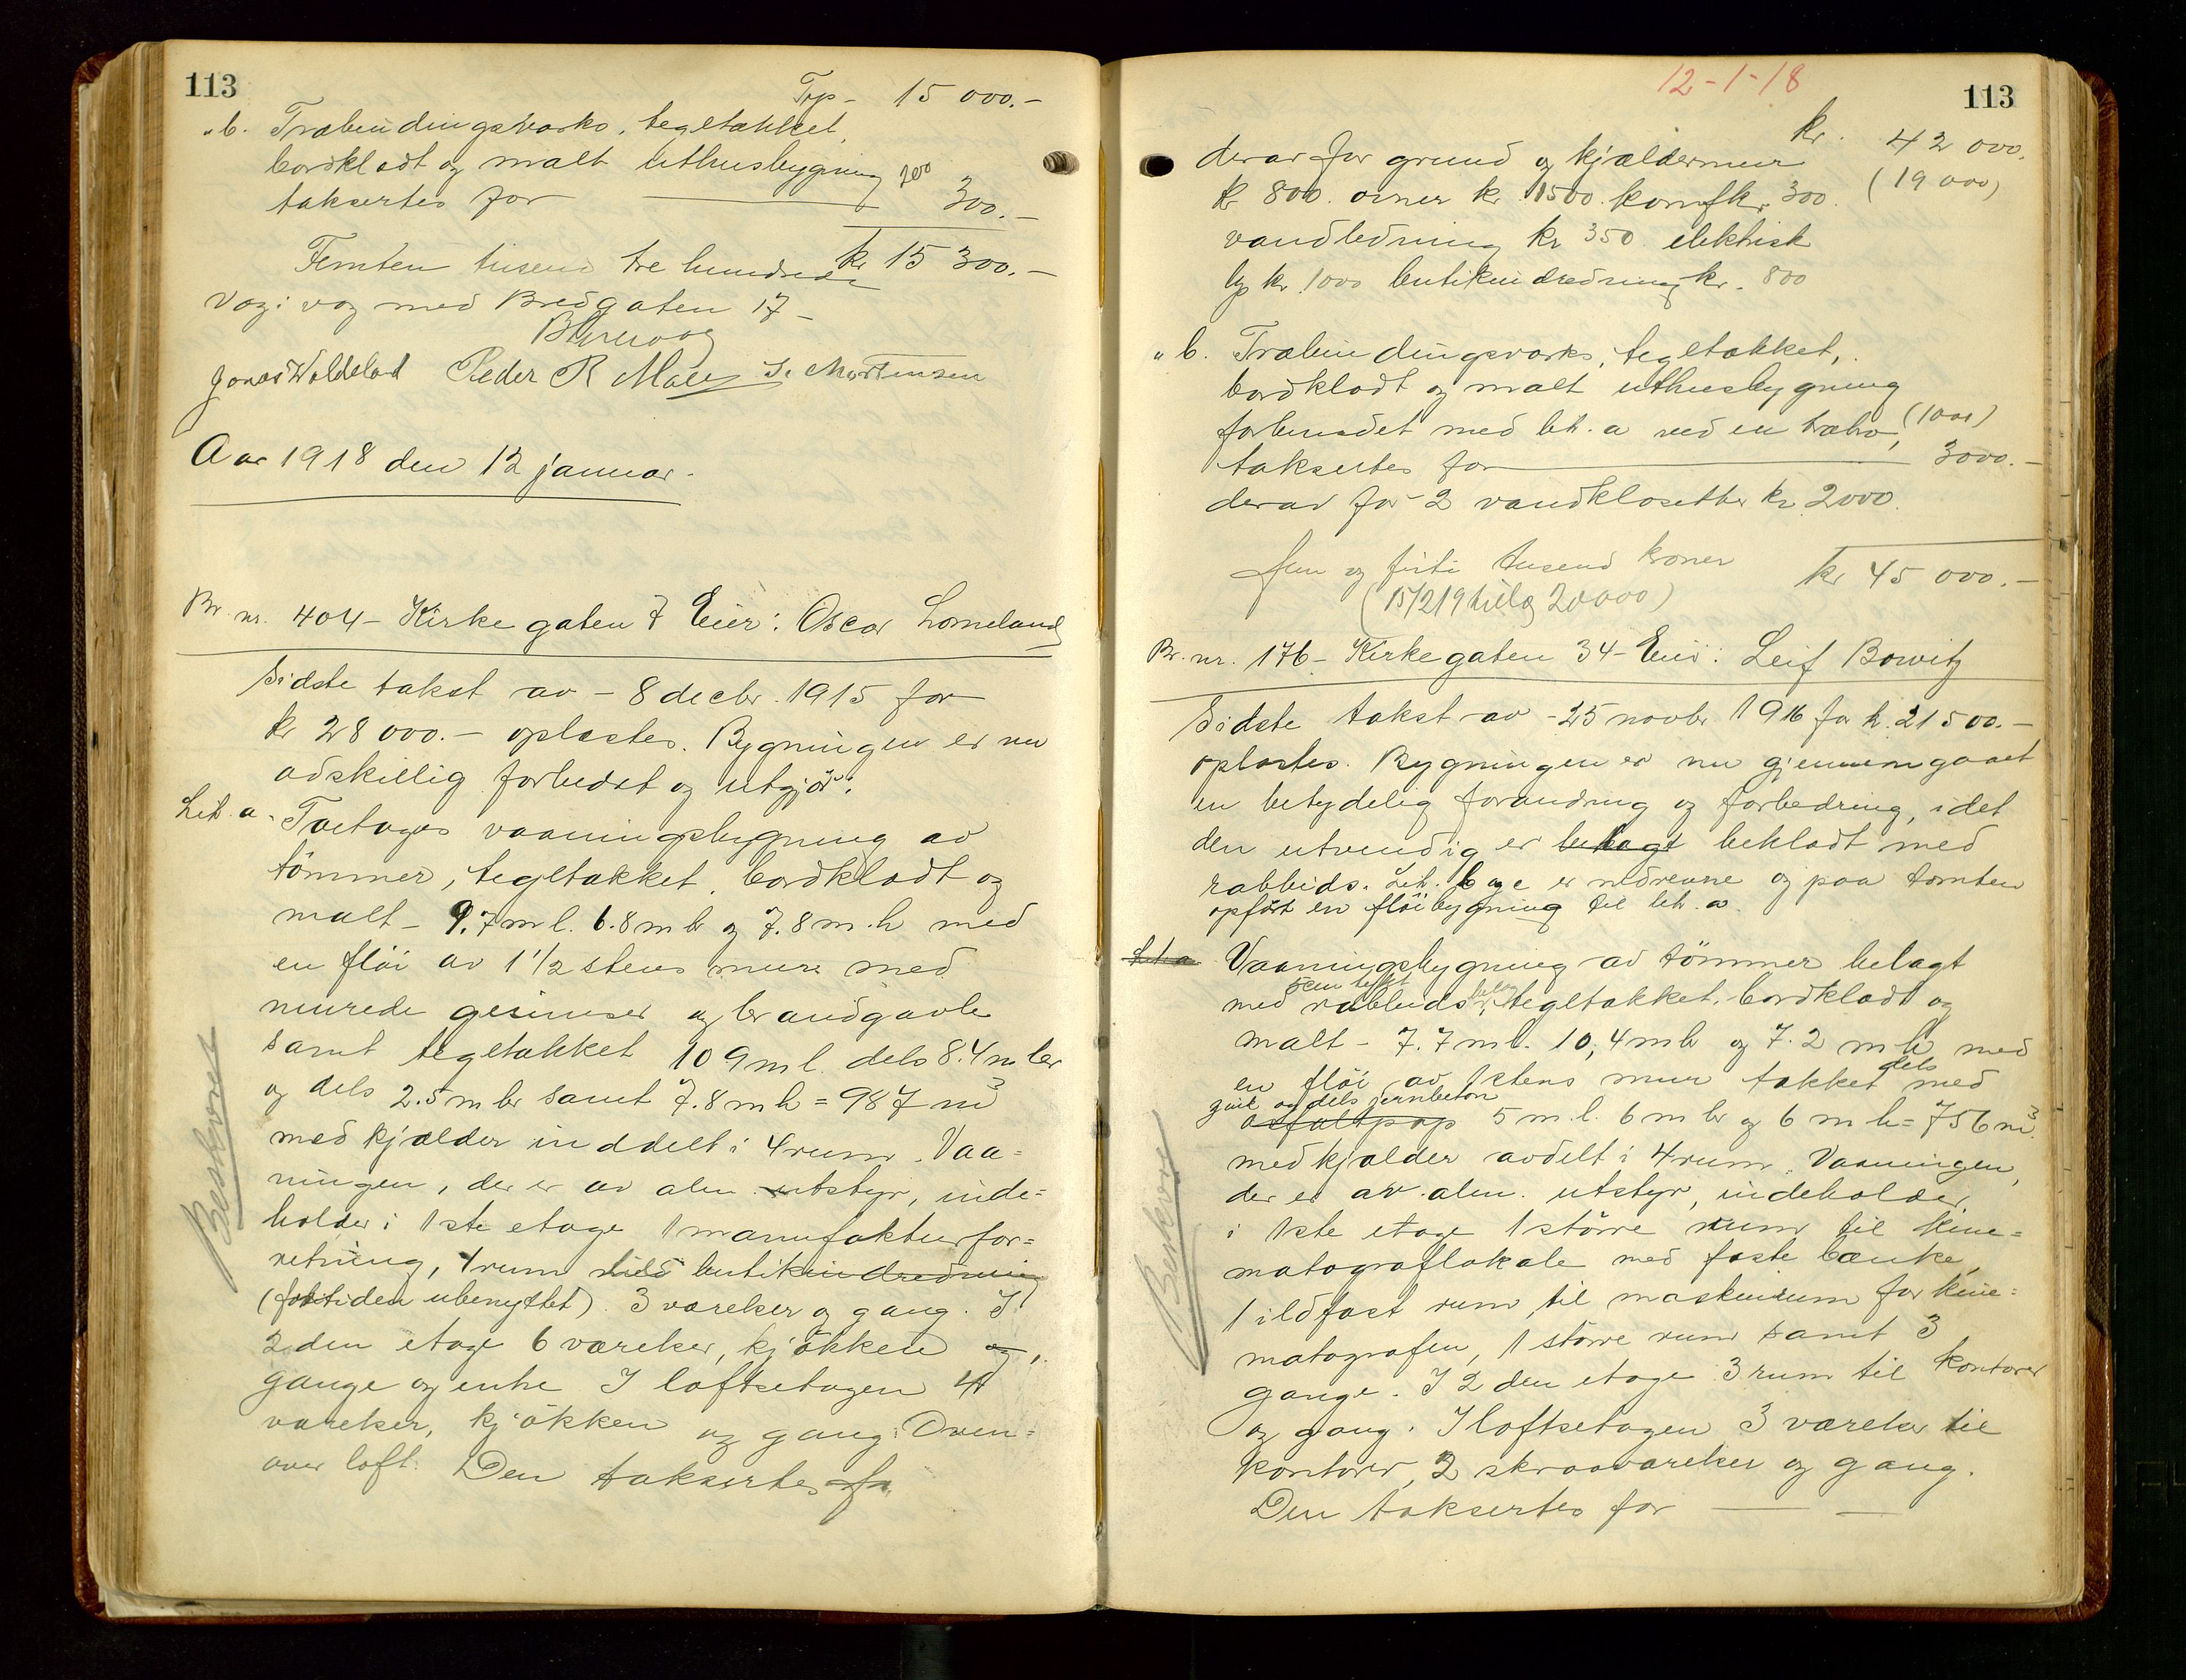 113
Trp - 15 000.-
" b. Træbindingsværks, tegltækket,
bordklædt og malt uthusbygning 200
taksertes for 300.-
Femten tusend tre hundrede kr 15 300.-
Vægi væg med Bredgaten 17 -
Jonas Waldeland Peder R Malu S. Mortensen
Aar 1918 den 12 januar.
Br. nr. 404 - Kirkegaten 7 Eier: Oscar Lomeland
Sidste takst av - 8 decbr. 1915 for
kr 28 000.- oplæstes. Bygningen er nu
adskillig forbedst og utgjør:
Lit. a. Toetages vaaningsbygning av
tömmer, tegltækket, bordklædt og
malt - 9.7 m l. 6.8 m br og 7.8 m. h med
en flöi av 1 1/2 stens mur med
murede gesimser og brandgavle
samt tegltækket 10 9 m l. dels 8.4 m br
og dels 2.5 m br samt 7.8 m h = 987 m³
med kjælder inddelt i 4 rum. Vaa=
ningen, der er av alm. utstyr, inde=
holder i 1ste etage 1 manufakturfor=
retning, 1 rum med butikindredning
(fortiden ubenyttet). 3 værelser og gang. I
2den etage 6 værelser, kjökken og,
gange og entre I loftsetagen 4
værelser, kjökken og gang. Oven=
over loft. Den taksertes for
Beskrevet
12-1-18
113
kr. 42 000.
derav for grund og kjældermur (19 000)
kr 800. ovner kr. 1500. komf kr. 300.
vandledning kr 350. elektrisk
lys kr. 1000 butikindredning kr. 800
" b. Træbindingsværks, tegltækket,
bordklædt og malt uthusbygning
forbundet med lit. a ved en træbro, (1000)
taksertes for 3000.-
derav for 2 vandklosetter kr. 2000.
Fem og firti tusend kroner kr 45 000.-
(15/2 19 tillæg 20000)
Br. nr. 176 - Kirkegaten 34 - Eier: Leif Bowitz
Sidste takst av - 25 novbr 1916 for kr. 21500.-
oplæstes. Bygningen er nu gjennemgaaet
en betydelig forandring og forbedring, idet
den utvendig er belagt beklædt med
rabbids. Lit. b og c er nedrevne og paa tomten
opfört en flöibygning til lit. a.
Lit a Vaaningsbygning av tömmer belagt
med rabbids, tegltækket, bordklædt og
malt - 7.7 m l. 10,4 m br og 7.2 m h med
en flöi av 1 stens mur tækket dels med
zink og dels jernbeton
asfaltpap 5 m l. 6 m br og 6 m h = 756 m³.
med kjælder avdelt i 4 rum. Vaaningen,
der er av alm. utstyr, indeholder
i 1ste etage 1 större rum til kine=
matograflokale med faste bænke,
1 ildfast rum til maskinrum for kine=
matografen, 1 större rum samt 3
gange. I 2den etage 3 rum til kontorer
og gang. I loftsetagen 3 værelser til
kontorer, 2 skraaværelser og gang.
Den taksertes for
Beskrevet